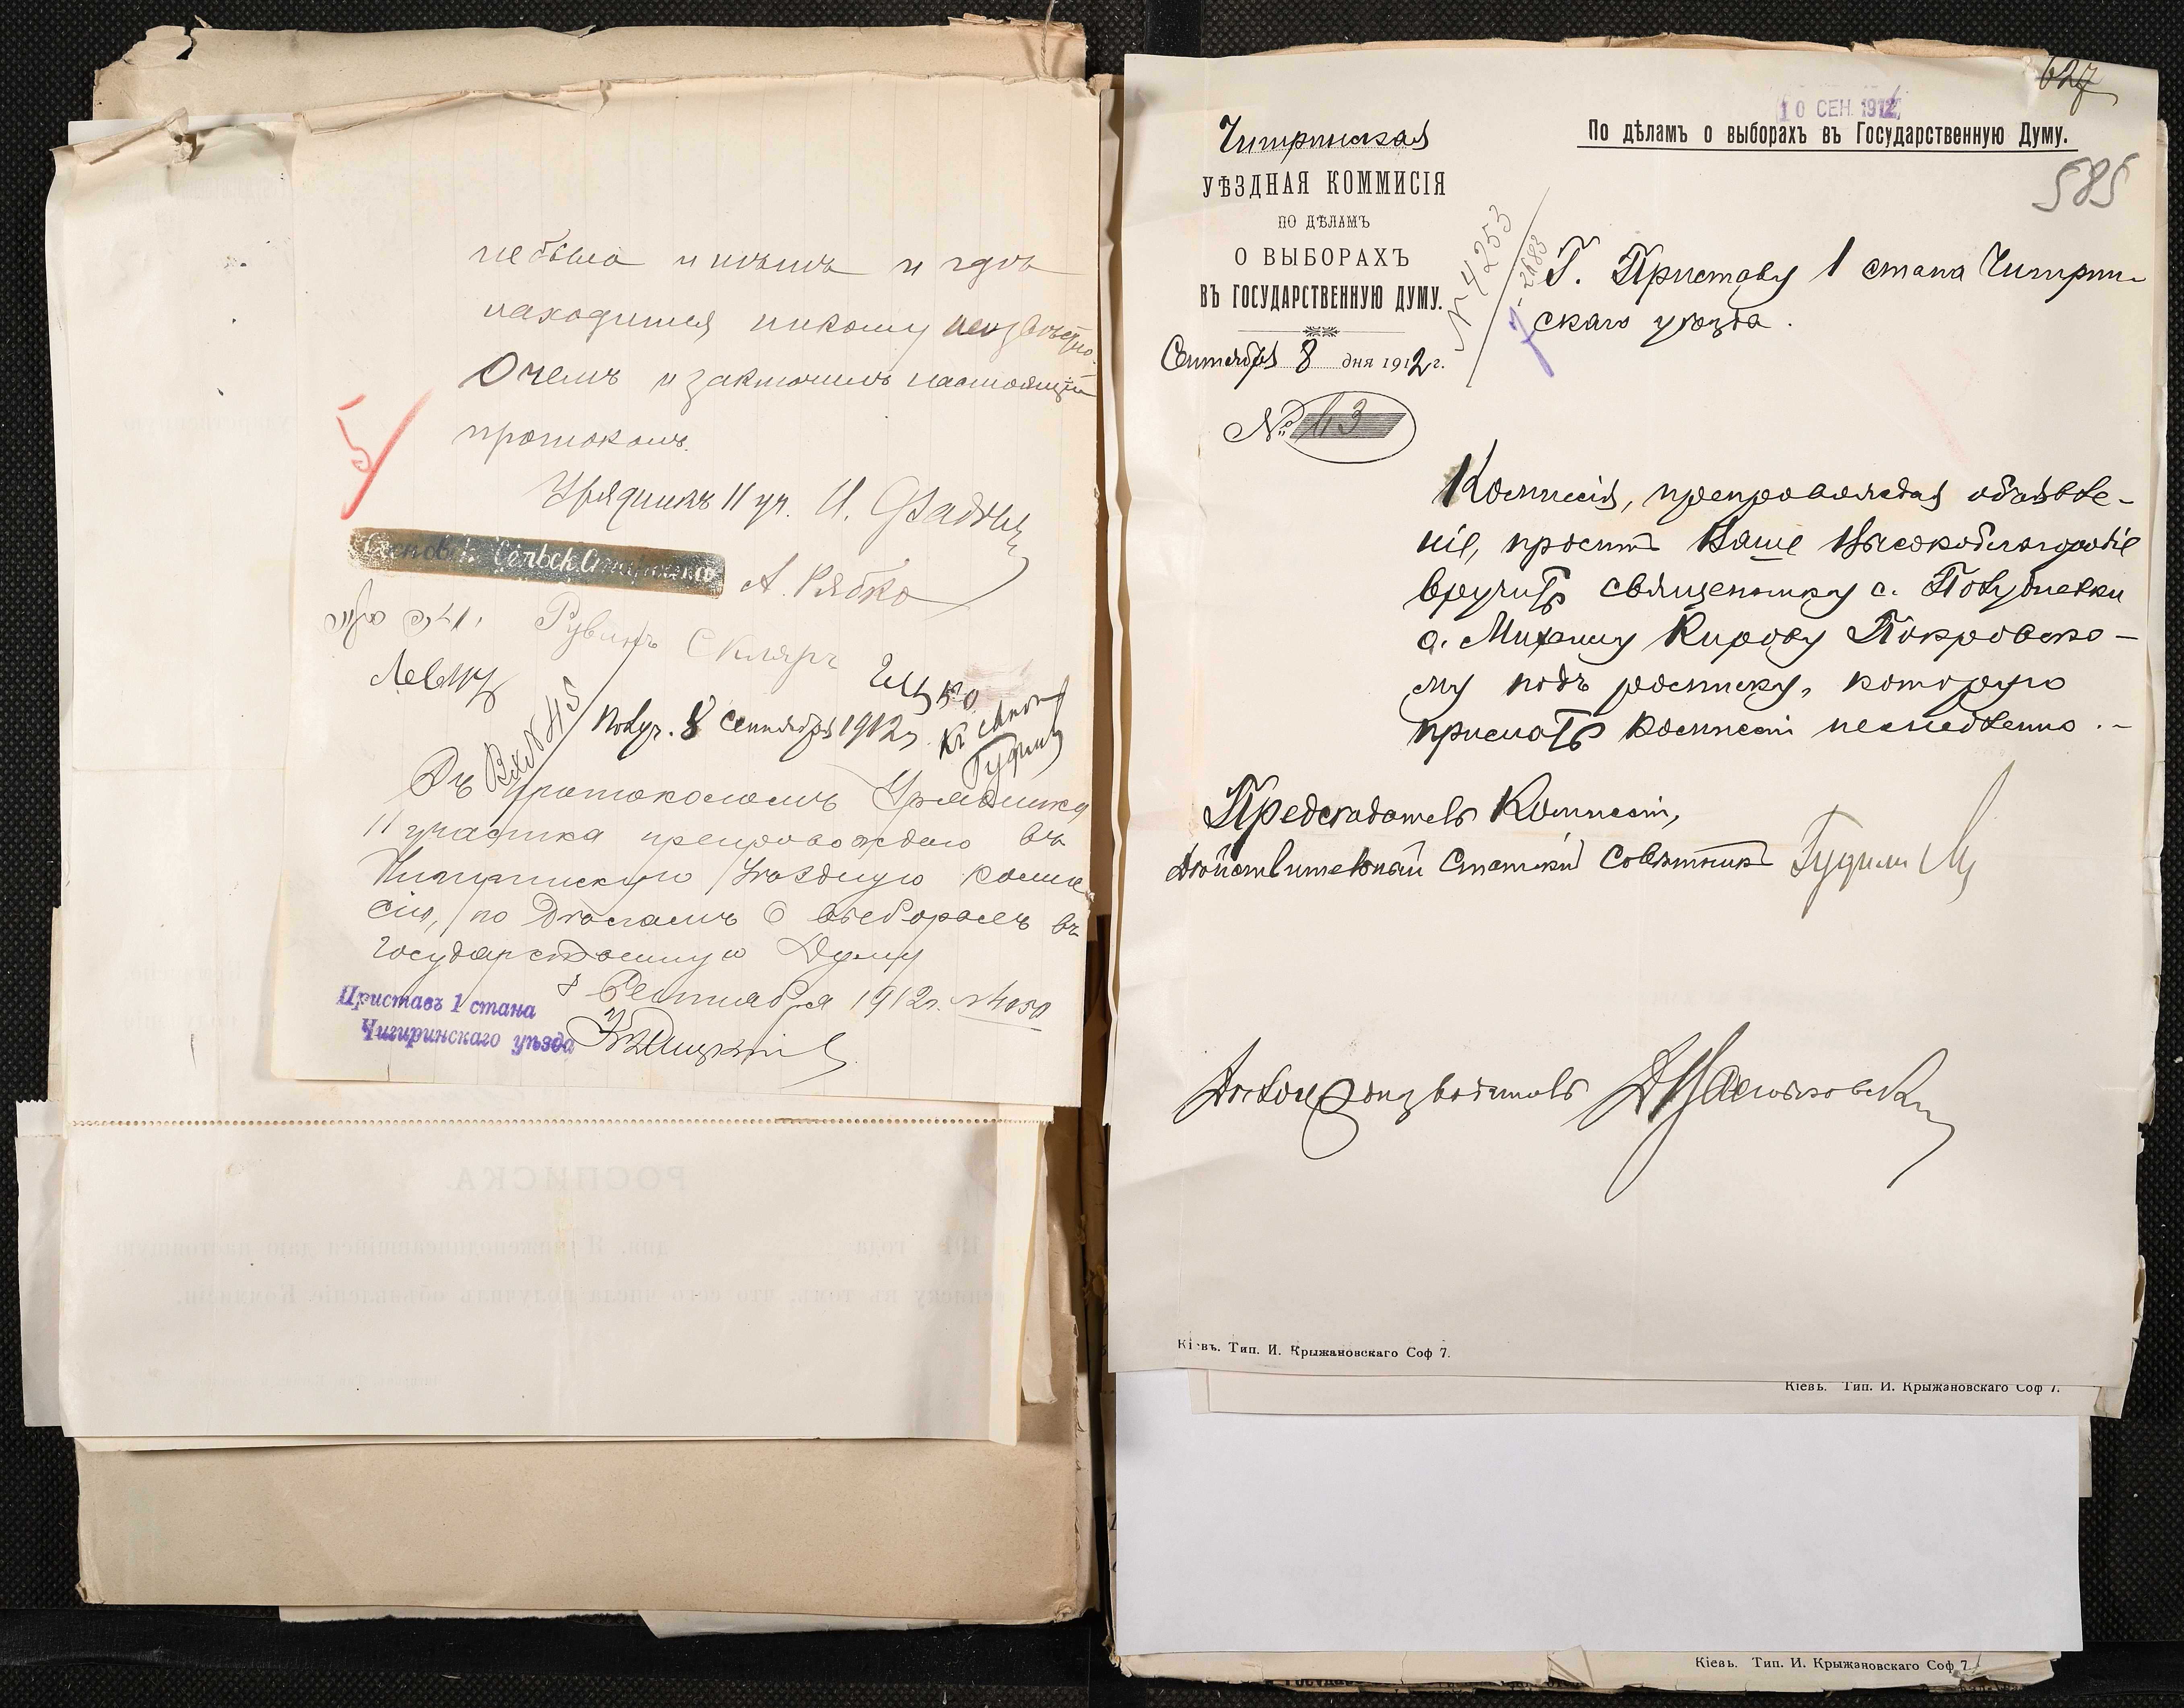 небыло и нѣтъ и гдѣ
находится никому неизвѣстно.
Очемъ и заключилъ настоящій
протоколъ.
Урядникъ 11 уч. И.
Сельск. Староста
А. Рябко
Рувинъ Скляръ
Вх № 45
Получ. 8 Сентября 1912 г.
Съ протоколомъ Урядника
11 участка препровождаю въ
Чигиринскую Уѣздную комис
сію, по Дѣламъ О выборахъ въ
Государственную Думу
8 Сентября 1912 г. № 4050
Приставъ 1 стана
Чигиринскаго уѣзда
5
РОСПИСКА.
627
10 СЕН. 1912
По дѣламъ о выборахъ въ Государственную Думу.
585
Чигиринская
УѢЗДНАЯ КОММИСІЯ
ПО ДѢЛАМЪ
О ВЫБОРАХЪ
ВЪ ГОСУДАРСТВЕННУЮ ДУМУ.
Сентября 8 дня 1912 г.
№ 63
№ 4253
Г. Приставу 1 стана Чигирин-
скаго уѣзда.
Комиссія, препровождая объявле-
ніе, проситъ Ваше Высокоблагородіе
вручить священнику с. Полудневки
о. Михаилу Кирову Покровско-
му подъ росписку, которую
прислать Комиссіи немедленно.-
Предсѣдатель Комиссіи,
Дѣйствительный Статскій Совѣтникъ
Дѣлопроизводитель
Кіевъ. Тип. И. Крыжановскаго Соф 7.
Кіевъ. Тип. И. Крыжановскаго Соф 7.
Кіевъ. Тип. И. Крыжановскаго Соф 7.